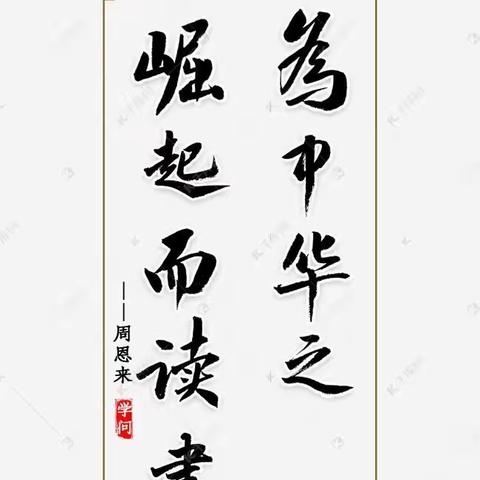 為中华之
崛起而读書
——周恩来
学问